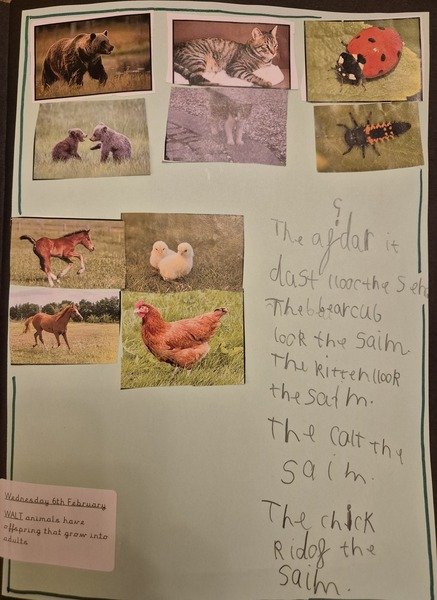 The
it
dust the
The bearcub
look the saim
The kitten look
the saim.
The calt the
saim.
The chick
Ridof the
saim.
Wednesday 6th February
WALT animals have
offspring that grow into
adults